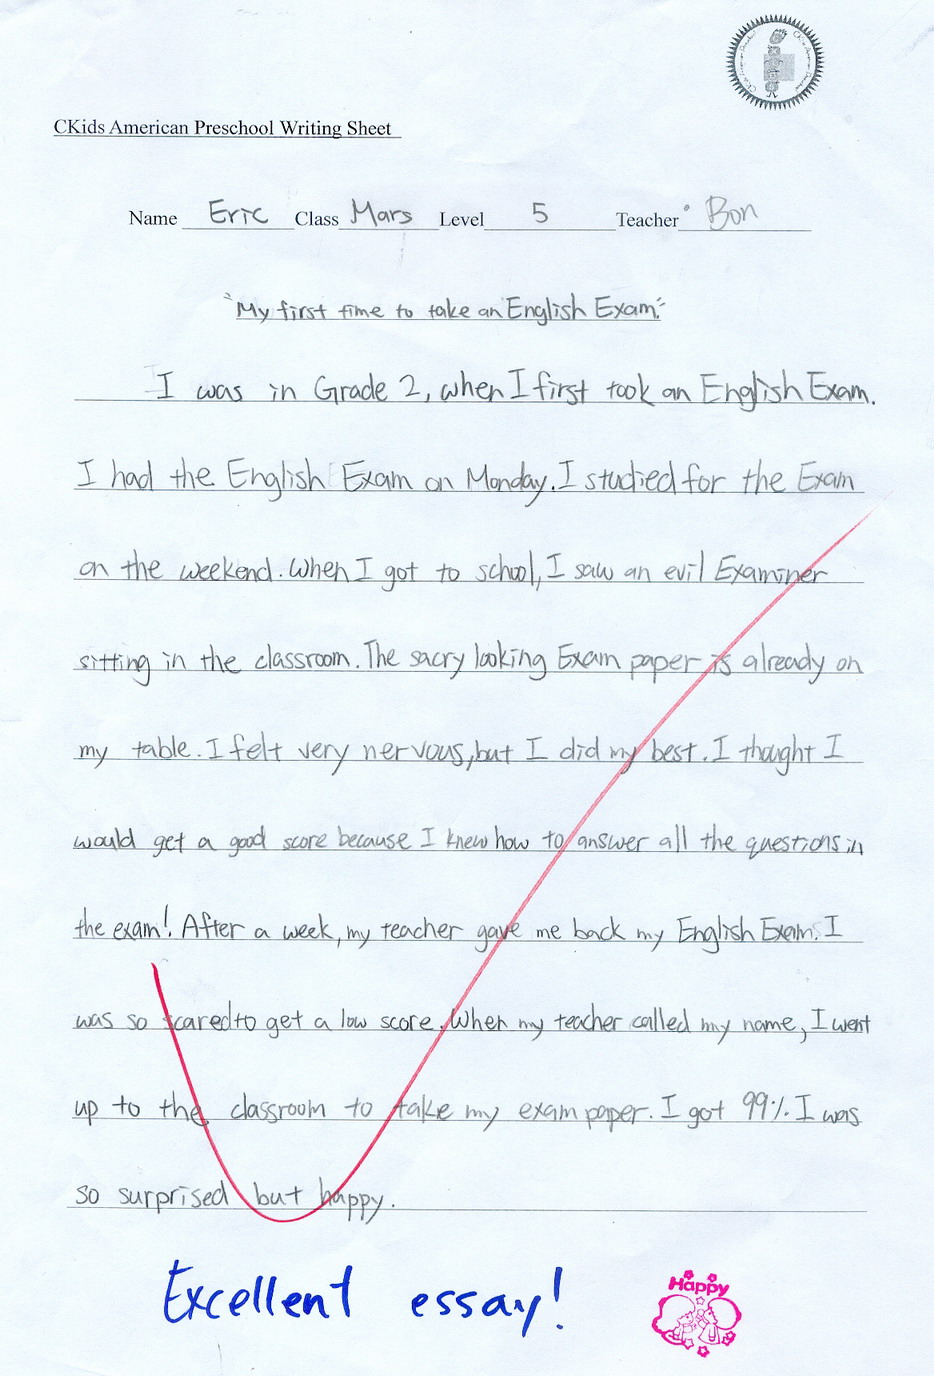 CKids American Preschool Writing Sheet
Name Eric Class Mars Level 5 Teacher Bon
"My first time to take an English Exam."
I was in Grade 2, when I first took an English Exam.
I had the English Exam on Monday. I studied for the Exam
on the weekend. When I got to school, I saw an evil Examiner
sitting in the classroom. The sacry looking Exam paper is already on
my table. I felt very nervous, but I did my best. I thought I
would get a good score because I knew how to answer all the questions in
the exam! After a week, my teacher gave me back my English Exam. I
was so scared to get a low score. When my teacher called my name, I went
up to the classroom to take my exam paper. I got 99%. I was
so surprised but happy.
Excellent essay!
Happy